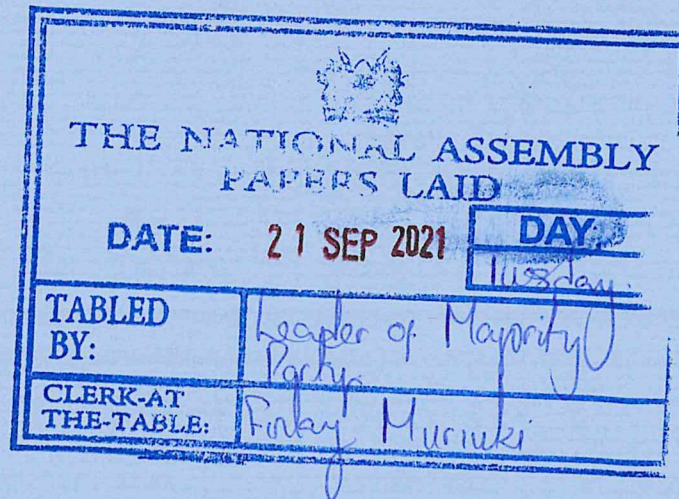 THE NATIONAL ASSEMBLY
PAPERS LAID
DATE: 21 SEP 2021 DAY:
Tuesday.
TABLED BY: Leader of Majority Party
CLERK-AT THE-TABLE: Muriuki